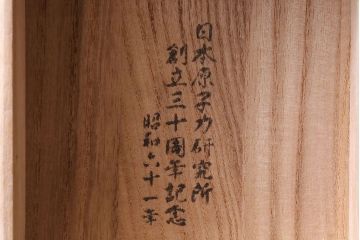 日本原子力研究所
創立三十周年記念
昭和六十一年